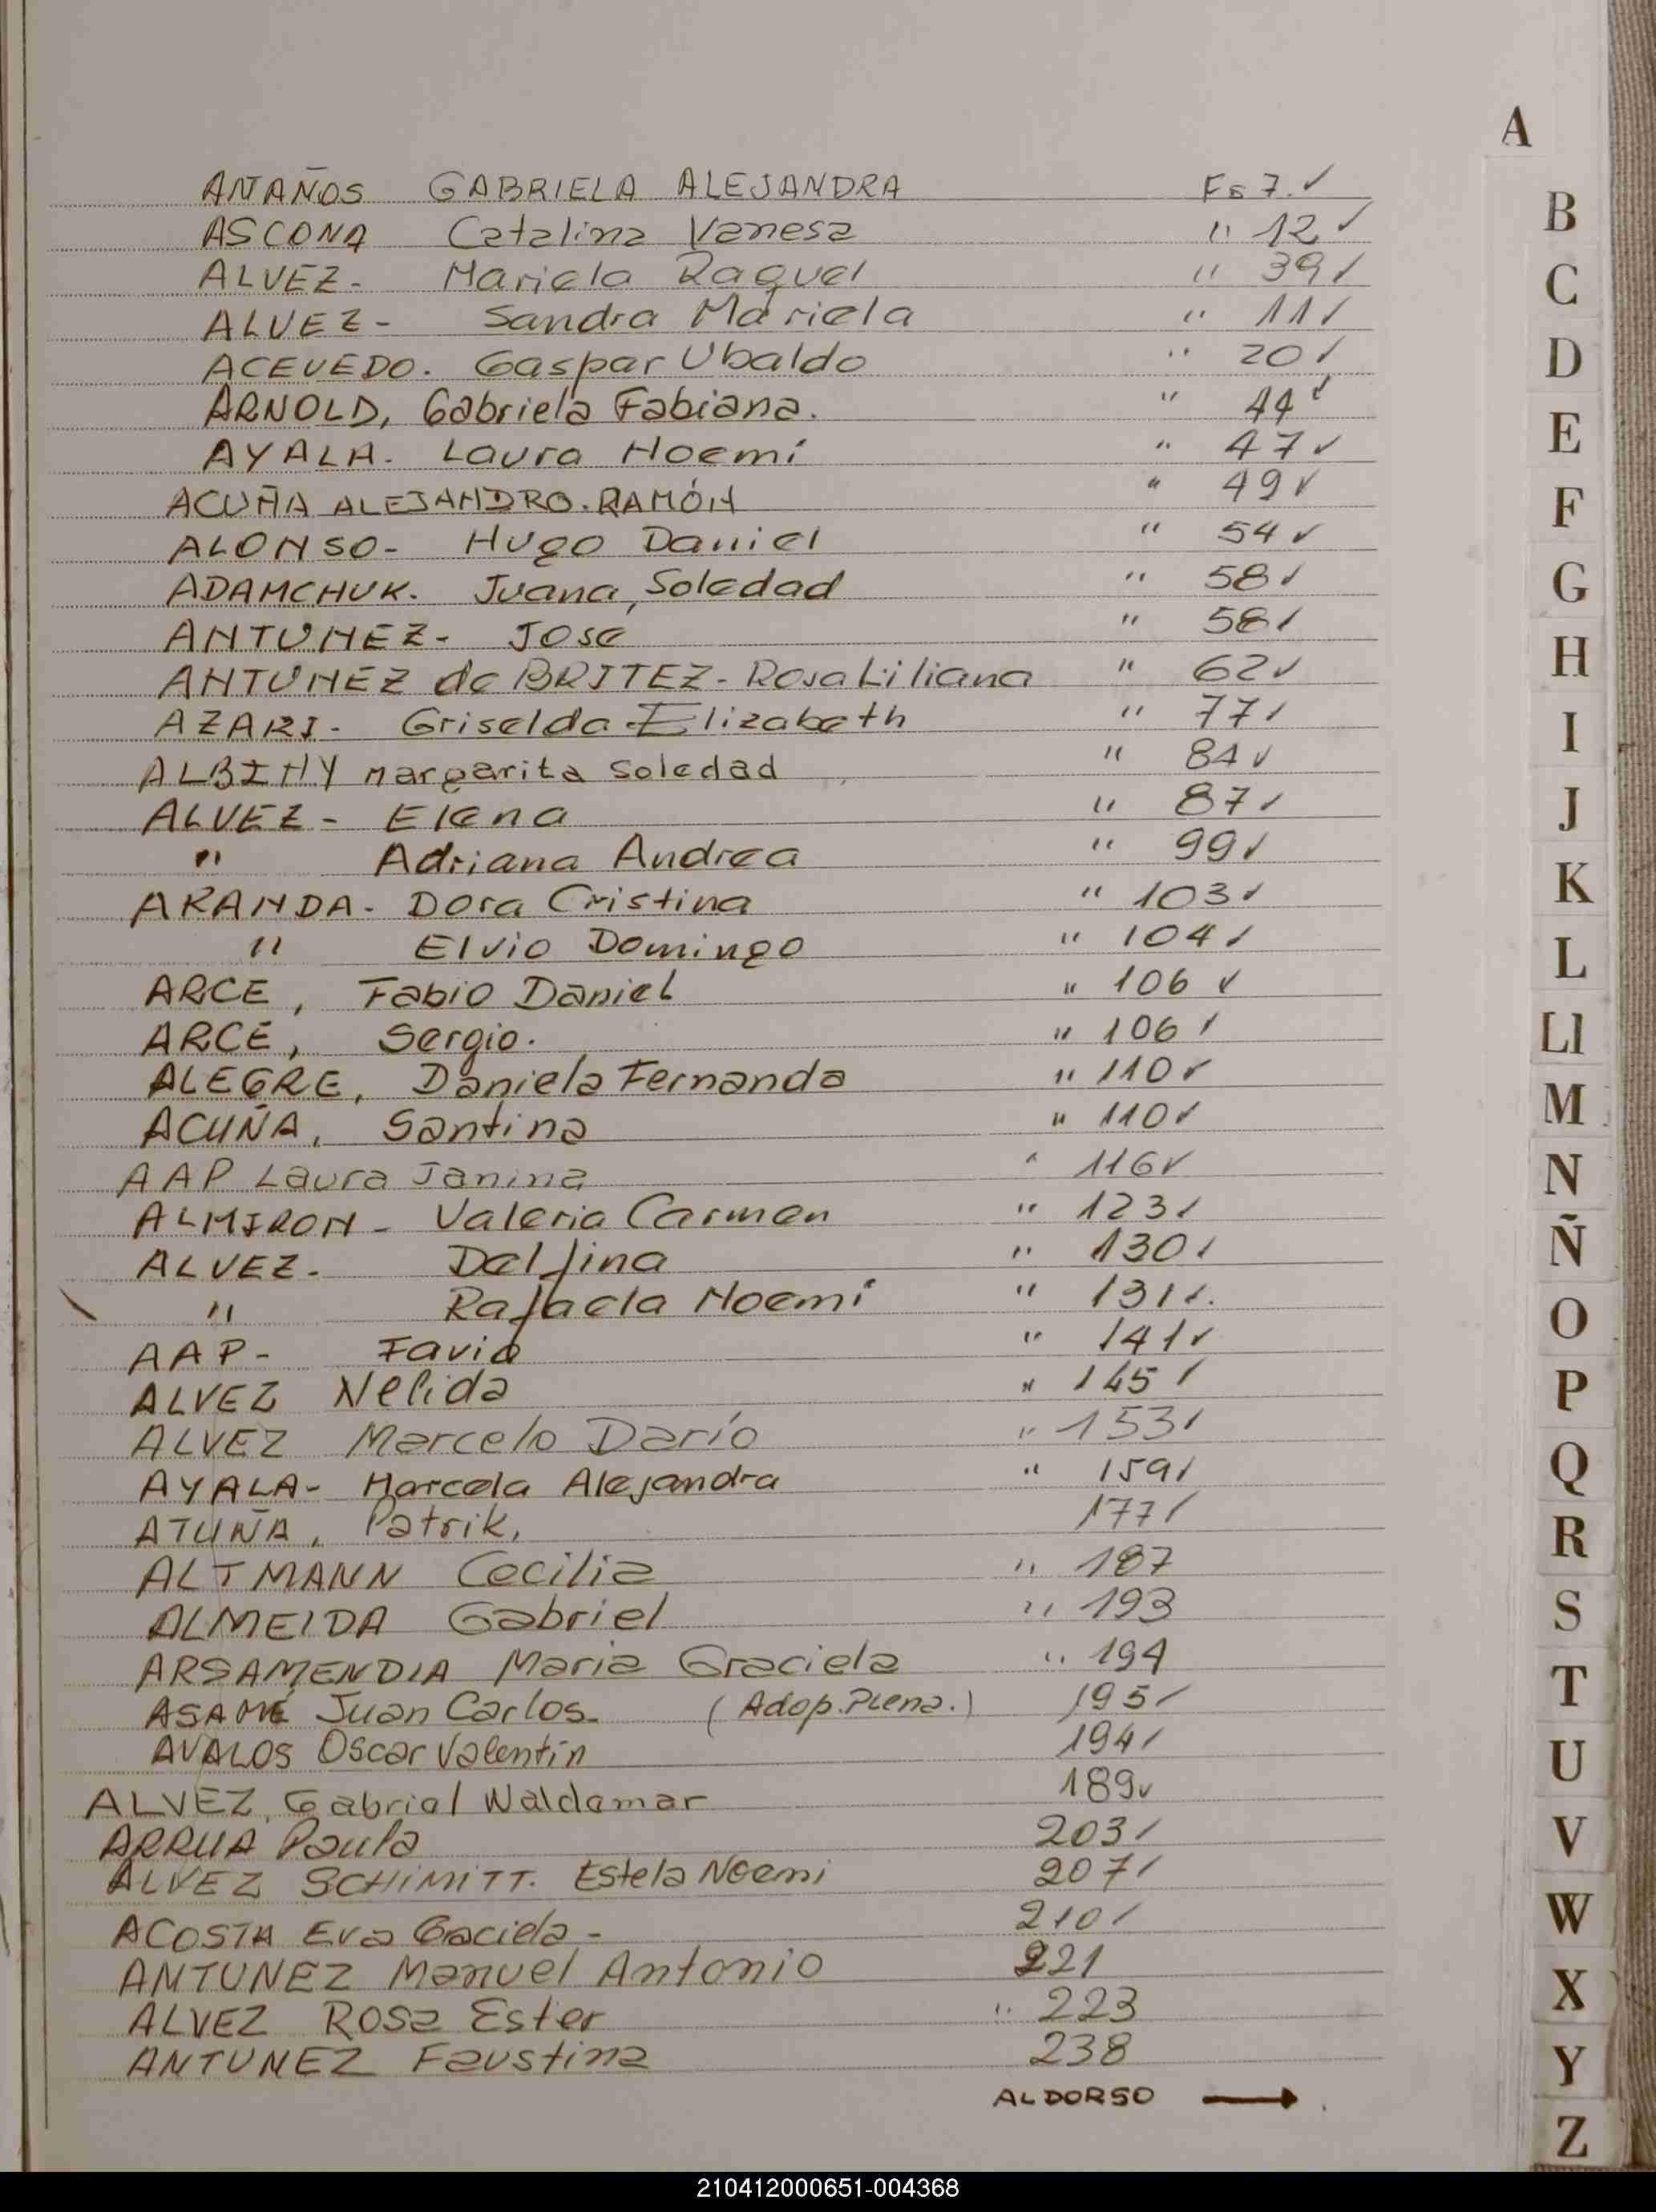 A
ANAÑOS GABRIELA ALEJANDRA Fs 7. ✓
ASCONA Catalina Vanesa " 12 ✓
ALVEZ - Mariela Raquel " 39 ✓
ALVEZ - Sandra Mariela " 11 ✓
ACEVEDO. Gaspar Ubaldo " 20 ✓
ARNOLD, Gabriela Fabiana. " 44 ✓
AYALA. Laura Noemí " 47 ✓
ACUÑA ALEJANDRO. RAMÓN " 49 ✓
ALONSO - Hugo Daniel " 54 ✓
ADAMCHUK. Juana, Soledad " 58 ✓
ANTUNEZ - José " 58 ✓
ANTUNEZ de BRITEZ - Rosa Liliana " 62 ✓
AZARI - Griselda Elizabeth " 77 ✓
ALBINY Margarita Soledad " 84 ✓
ALVEZ - Elena " 87 ✓
" Adriana Andrea " 99 ✓
ARANDA - Dora Cristina " 103 ✓
" Elvio Domingo " 104 ✓
ARCE, Fabio Daniel " 106 ✓
ARCE, Sergio. " 106 ✓
ALEGRE, Daniela Fernanda " 110 ✓
ACUÑA, Santina " 110 ✓
AAP Laura Janina " 116 ✓
ALMIRON - Valeria Carmen " 123 ✓
ALVEZ - Delfina " 130 ✓
" Rafaela Noemí " 131 ✓.
AAP - Favio " 141 ✓
ALVEZ Nelida " 145 ✓
ALVEZ Marcelo Darío " 153 ✓
AYALA - Marcela Alejandra " 159 ✓
ATUÑA, Patrik, 177 ✓
ALTMANN Cecilia " 187
ALMEIDA Gabriel " 193
ARSAMENDIA Maria Graciela " 194
ASAMÉ Juan Carlos. (Adop. Plena.) 195 ✓
AVALOS Oscar Valentín 194 ✓
ALVEZ, Gabriel Waldemar 189 ✓
ARRUA Paula 203 ✓
ALVEZ SCHIMITT. Estela Noemi 207 ✓
ACOSTA Eva Gaciela - 210 ✓
ANTUNEZ Manuel Antonio 221
ALVEZ Rosa Ester " 223
ANTUNEZ Faustina 238
AL DORSO →
B
C
D
E
F
G
H
I
J
K
L
Ll
M
N
Ñ
O
P
Q
R
S
T
U
V
W
X
Y
Z
210412000651-004368